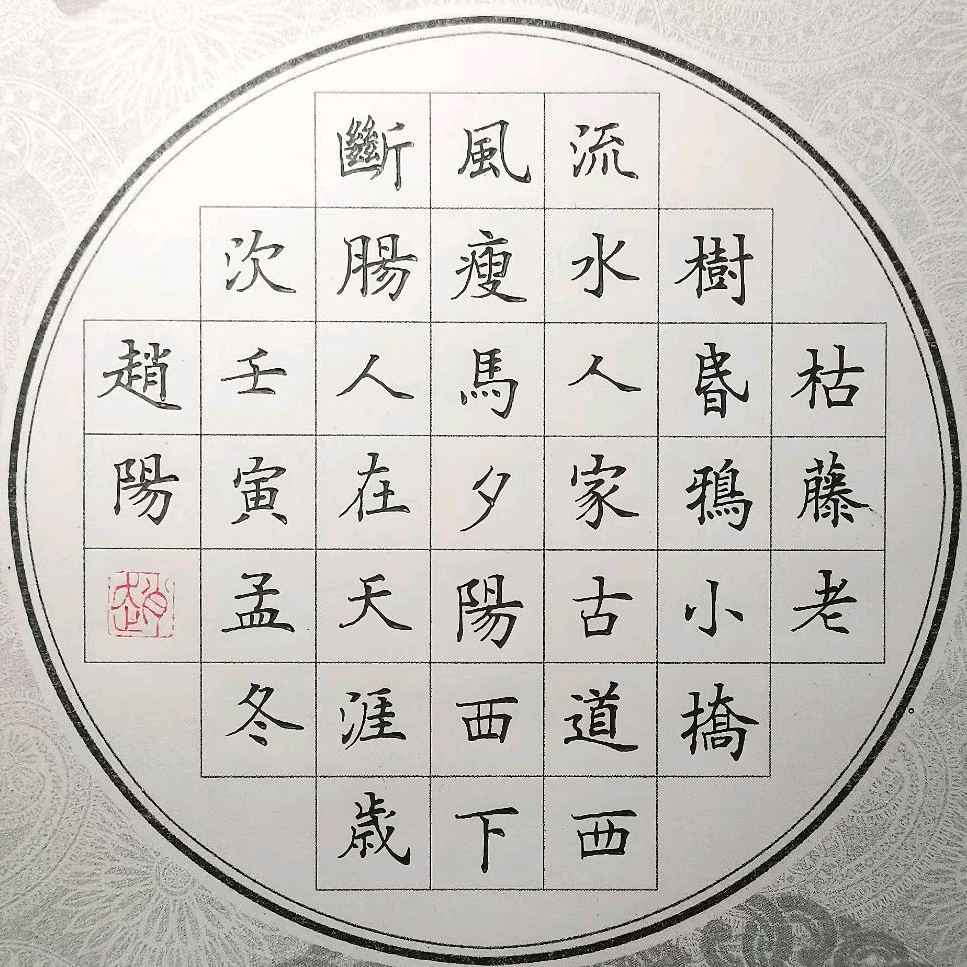 枯藤老
樹昏鴉小橋
流水人家古道西
風瘦馬夕陽西下
斷腸人在天涯歲
次壬寅孟冬
趙陽
趙